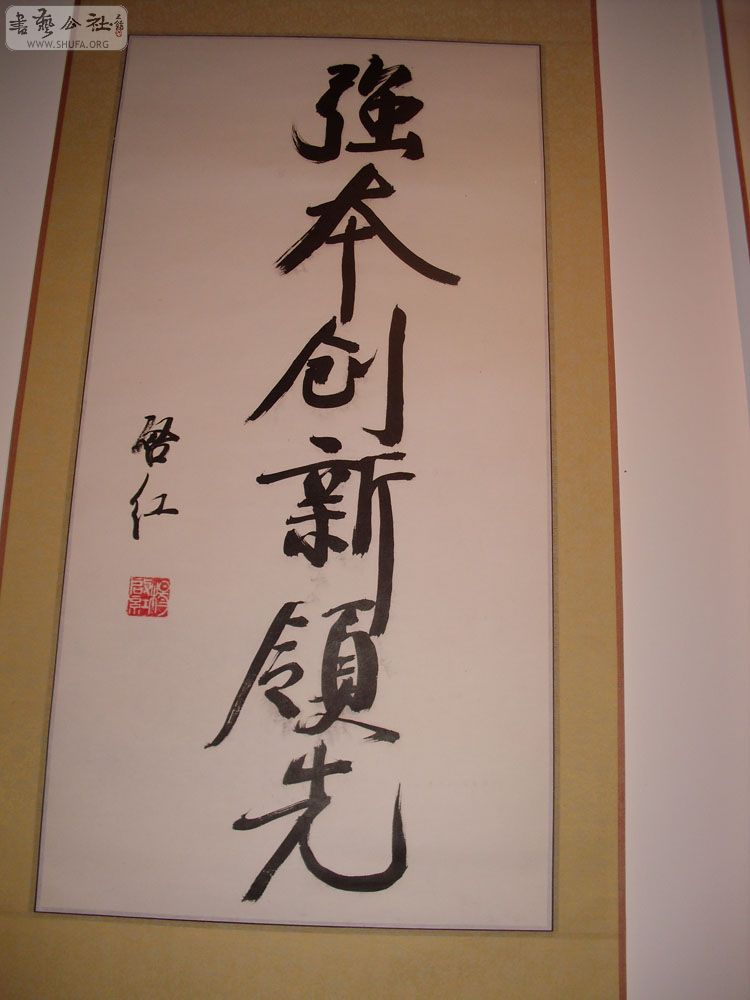 書藝公社
WWW.SHUFA.ORG
強本创新領先
啓红